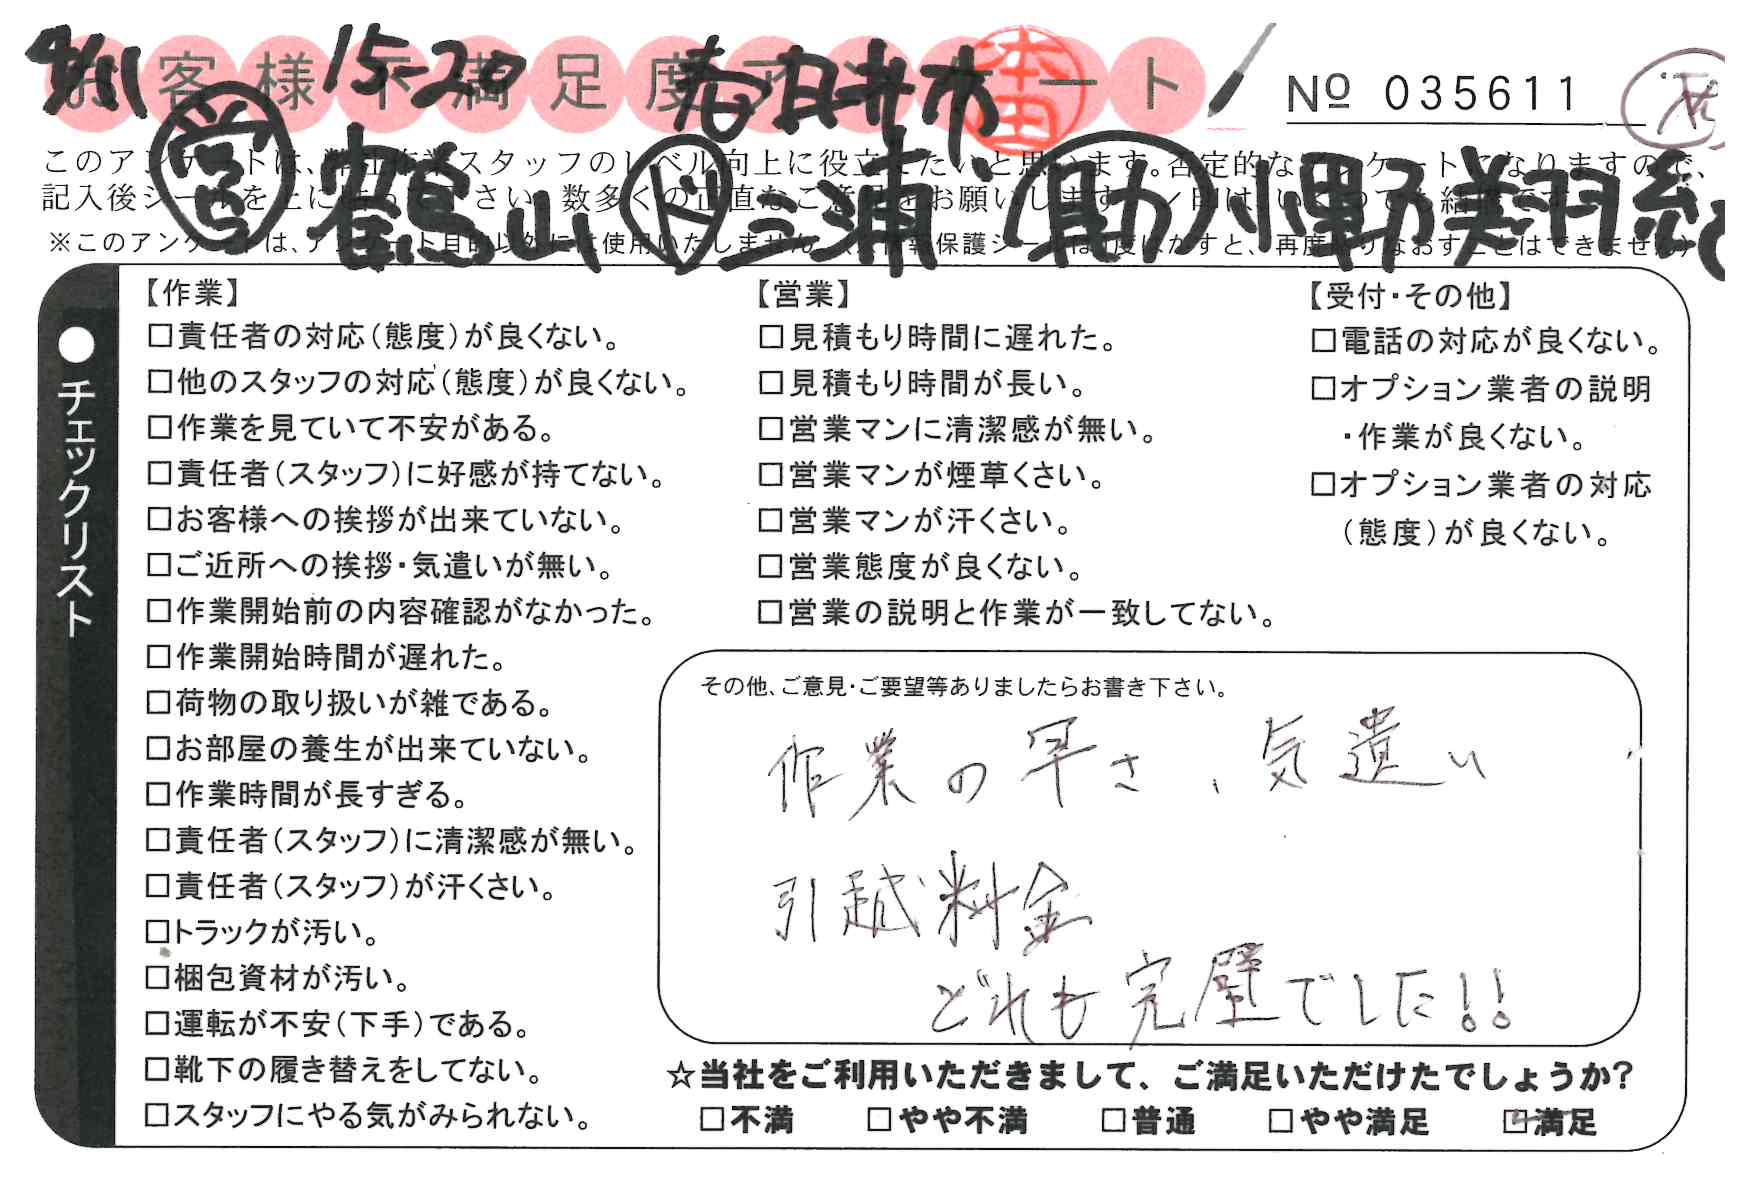 4/11 15-20 春日井市
お客様不満足度アンケート
№ 035611
営 鶴山 ド 三浦 助 小野 美羽
このアンケートは、弊社作業スタッフのレベル向上に役立てたいと思います。否定的なアンケートになりますので、
記入後シールを上に貼って下さい。数多くの正直なご意見をお願いします。
※このアンケートは、アンケート目的以外には使用いたしません。(個人情報保護シールは1度はがすと、再度貼りなおすことはできません)
●チェックリスト
【作業】
□責任者の対応(態度)が良くない。
□他のスタッフの対応(態度)が良くない。
□作業を見ていて不安がある。
□責任者(スタッフ)に好感が持てない。
□お客様への挨拶が出来ていない。
□ご近所への挨拶・気遣いが無い。
□作業開始前の内容確認がなかった。
□作業開始時間が遅れた。
□荷物の取り扱いが雑である。
□お部屋の養生が出来ていない。
□作業時間が長すぎる。
□責任者(スタッフ)に清潔感が無い。
□責任者(スタッフ)が汗くさい。
□トラックが汚い。
□梱包資材が汚い。
□運転が不安(下手)である。
□靴下の履き替えをしてない。
□スタッフにやる気がみられない。
【営業】
□見積もり時間に遅れた。
□見積もり時間が長い。
□営業マンに清潔感が無い。
□営業マンが煙草くさい。
□営業マンが汗くさい。
□営業態度が良くない。
□営業の説明と作業が一致してない。
【受付・その他】
□電話の対応が良くない。
□オプション業者の説明
・作業が良くない。
□オプション業者の対応
(態度)が良くない。
その他、ご意見・ご要望等ありましたらお書き下さい。
作業の早さ、気遣い
引越料金
どれも完璧でした!!
☆当社をご利用いただきまして、ご満足いただけたでしょうか?
□不満 □やや不満 □普通 □やや満足 ☑満足